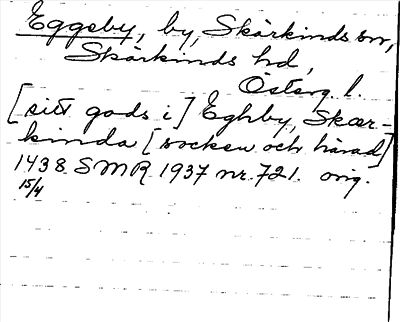 Eggeby, by, Skärkinds sn,
Skärkinds hd,
Österg. l.
[sitt gods i] Eghby, Skær-
kinda [socken och härad]
1438 SMR 1937 nr. 721. orig.
15/4